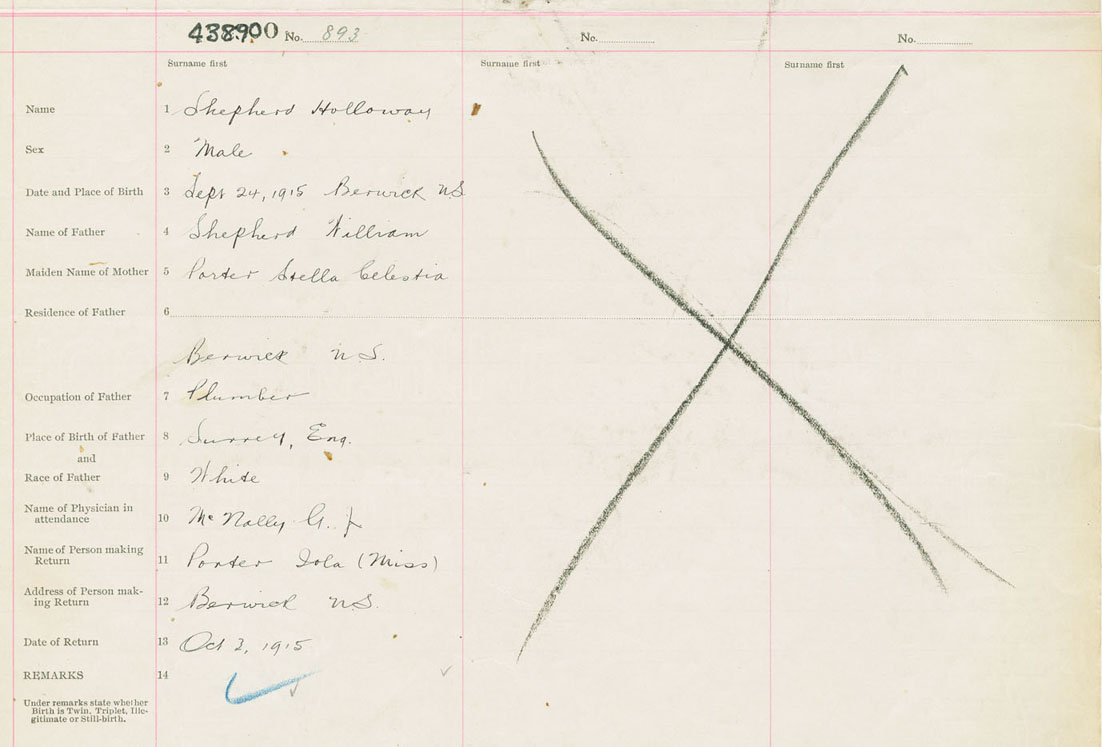 438900 No. 893 No. No.
Surname first Surname first Surname first
Name 1 Shepherd Holloway
Sex 2 Male
Date and Place of Birth 3 Sept 24, 1915 Berwick N.S.
Name of Father 4 Shepherd William
Maiden Name of Mother 5 Porter Stella Celestia
Residence of Father 6
Berwick N.S.
Occupation of Father 7 Plumber
Place of Birth of Father 8 Surrey, Eng.
and
Race of Father 9 White
Name of Physician in
attendance 10 McNally G. J.
Name of Person making
Return 11 Porter Iola (Miss)
Address of Person mak-
ing Return 12 Berwick N.S.
Date of Return 13 Oct 2, 1915
REMARKS 14
Under remarks state whether
Birth is Twin, Triplet, Ille-
gitimate or Still-birth.